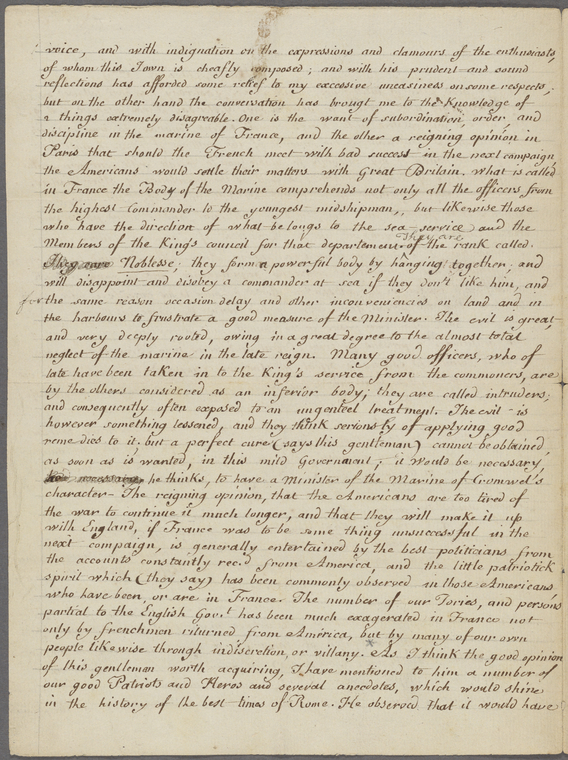 voice, and with indignation on the expressions and clamours of the enthusiasts,
of whom this Town is cheafly composed; and with his prudent and sound
reflections has afforded some relief to my excessive uneasiness on some respects;
but on the other hand the conversation has brougt me to the Knowledge of
2 things extremely disagreable. One is the want of subordination, order, and
discipline in the marine of France, and the other a reigning opinion in
Paris that should the French meet with bad success in the next campaign,
the Americans would settle their matters with Great Britain. What is called
in France the Body of the Marine comprehends not only all the officers from
the highest Commander to the youngest midshipman, but likewise those
who have the direction of what belongs to the sea service and the
Members of the King's council for that departement
They are
of the rank called
They are Noblesse; they form a powerful body by hanging together; and
will disappoint and disobey a commander at sea if they don't like him, and
for the same reason occasion delay and other inconveniencies on land and in
the harbours to frustrate a good measure of the Minister. The evil is great,
and very deeply rooted, owing in a great degree to the almost total
neglect of the marine in the late reign. Many good officers, who of
late have been taken in to the King's service from the commoners, are
by the others considered as an inferior body; they are called intruders;
and consequently often exposed to an ungenteel treatment. The evil is
however something lessened, and they think seriously of applying good
remedies to it: but a perfect cure (says this gentleman) cannot be obtained,
as soon as is wanted, in this mild Government; it would be necessary,
he thinks, to have a Minister of the Marine of Cromwel's
character - The reigning opinion, that the Americans are too tired of
the war to continue it much longer, and that they will make it up
with England, if France was to be some thing unsuccessful in the
next campaign, is generally entertained by the best politicians from
the accounts constantly rec.d from America, and the little patriotick
spirit which (they say) has been commonly observed in those Americans
who have been, or are in France. The number of our Tories, and persons
partial to the English Gov.t has been much exagerated in France not
only by frenchmen returned from America, but by many of our own
people likewise through indiscretion, or villany. As I think the good opinion
of this gentleman worth acquiring, I have mentioned to him a number of
our good Patriots and Heros and several anecdotes, which would shine
in the history of the best times of Rome. He observed that it would have